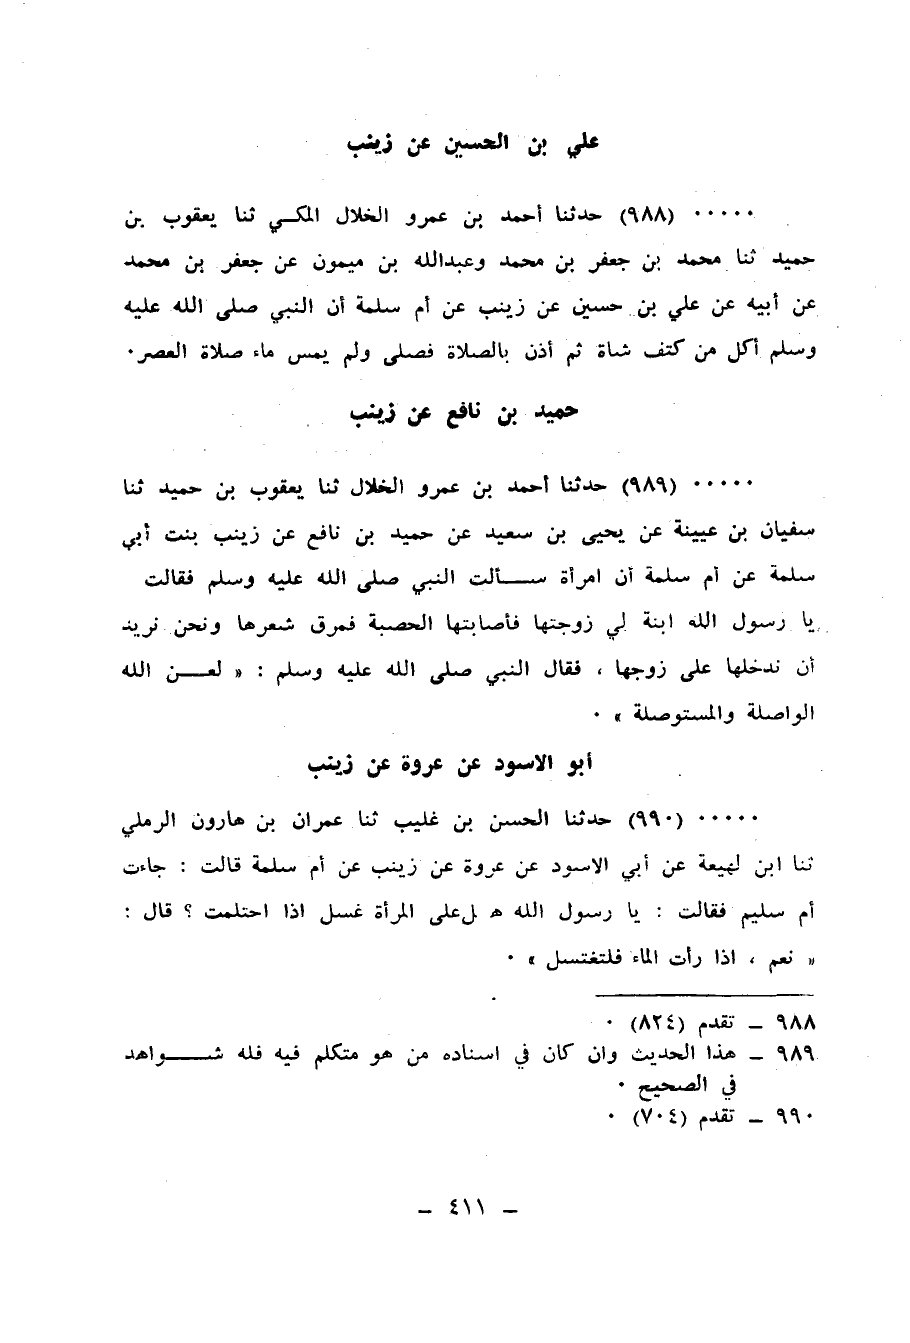 علي بن الحسين عن زينب
٠٠٠٠٠ (٩٨٨) حدثنا أحمد بن عمرو الخلال المكــي ثنا يعقوب بن
حميد ثنا محمد بن جعفر بن محمد وعبدالله بن ميمون عن جعفر بن محمد
عن أبيه عن علي بن حسين عن زينب عن أم سلمة أن النبي صلى الله عليه
وسلم أكل من كتف شاة ثم أذن بالصلاة فصلى ولم يمس ماء صلاة العصر٠
حميد بن نافع عن زينب
٠٠٠٠٠ (٩٨٩) حدثنا أحمد بن عمرو الخلال ثنا يعقوب بن حميد ثنا
سفيان بن عيينة عن يحيى بن سعيد عن حميد بن نافع عن زينب بنت أبي
سلمة عن أم سلمة أن امرأة ســـألت النبي صلى الله عليه وسلم فقالت
يا رسول الله ابنة لي زوجتها فأصابتها الحصبة فمرق شعرها ونحن نريد
أن ندخلها على زوجها ، فقال النبي صلى الله عليه وسلم : « لعـــن الله
الواصلة والمستوصلة » ٠
أبو الاسود عن عروة عن زينب
٠٠٠٠٠ (٩٩٠) حدثنا الحسن بن غليب ثنا عمران بن هارون الرملي
ثنا ابن لهيعة عن أبي الاسود عن عروة عن زينب عن أم سلمة قالت : جاءت
أم سليم فقالت : يا رسول الله هـ لعلى المرأة غسل اذا احتلمت ؟ قال :
« نعم ، اذا رأت الماء فلتغتسل » ٠
٩٨٨ ــ تقدم (٨٢٤) ٠
٩٨٩ ــ هذا الحديث وان كان في اسناده من هو متكلم فيه فله شـــواهد
في الصحيح ٠
٩٩٠ ــ تقدم (٧٠٤) ٠
ــ ٤١١ ــ